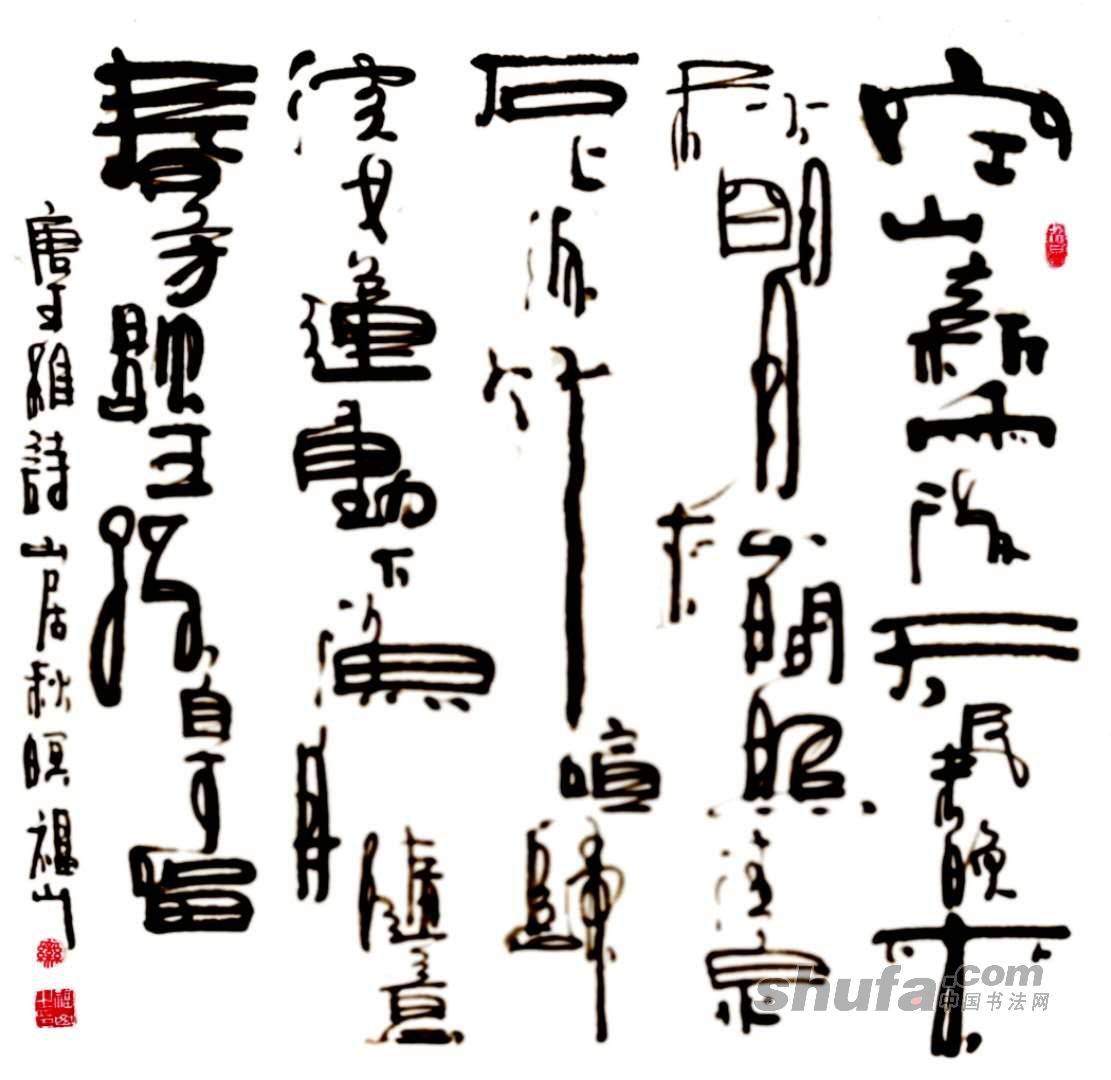 空山新雨後天氣晚來
秋明月松間照清泉
石上流竹喧歸
浣女蓮動下漁舟隨意
春芳歇王孫自可留
唐王維詩山居秋暝 福山
shufa.com
中国书法网